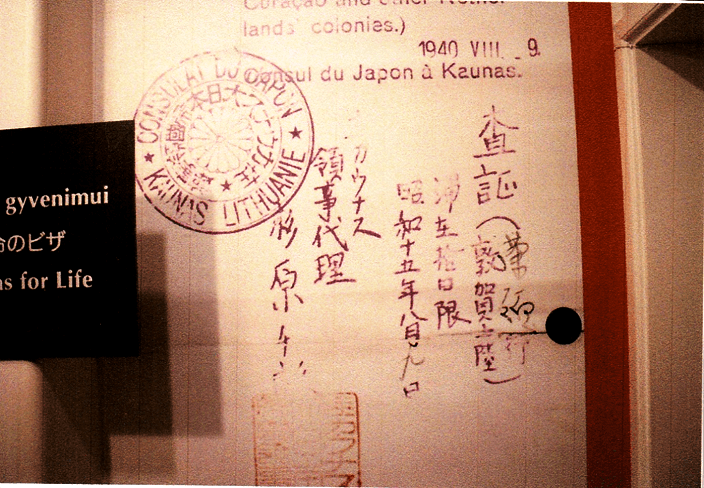 Curaçao and other Nether-
lands' colonies.)
1940 VIII. 9.
Consul du Japon à Kaunas.
CONSULAT DU JAPON
KAUNAS LITHUANIE
査証(敦賀上陸)
滞在拾日限
昭和十五年八月九日
カウナス
領事代理
杉原千
gyvenimui
命のビザ
as for Life